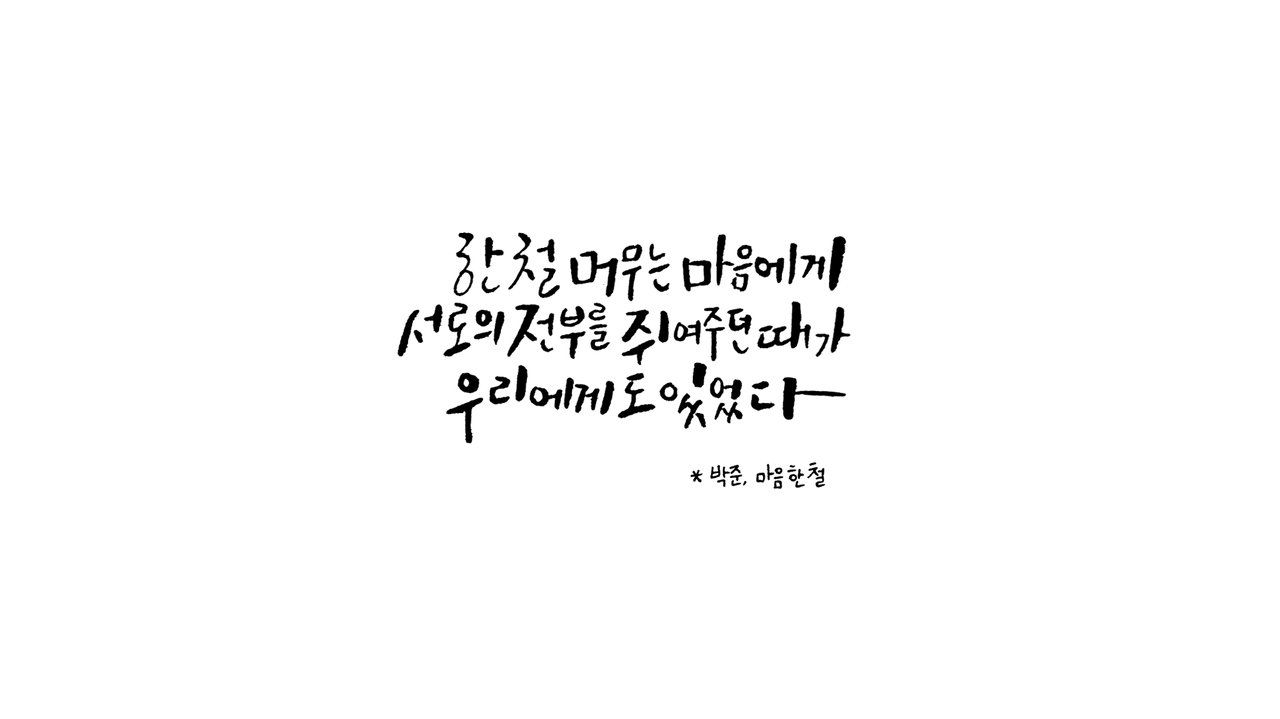 한 철 머무는 마음에게
서로의 전부를 쥐여주던 때가
우리에게도 있었다
* 박준, 마음 한 철